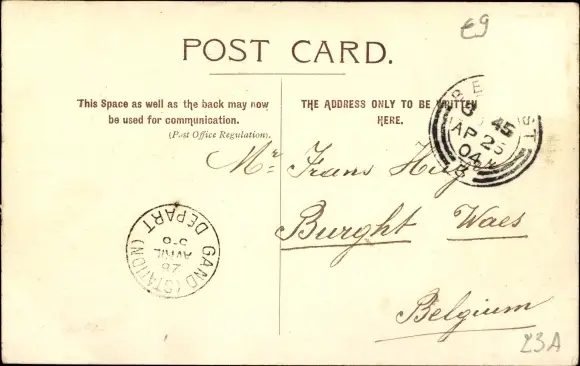 £9
POST CARD.
This Space as well as the back may now
be used for communication.
(Post Office Regulation).
THE ADDRESS ONLY TO BE WRITTEN
HERE.
BELFAST
45
AP 25
04
Mr. Frans
Burght Waes
Belgium
GAND (STATION)
DEPART
26
AVRIL
£3A